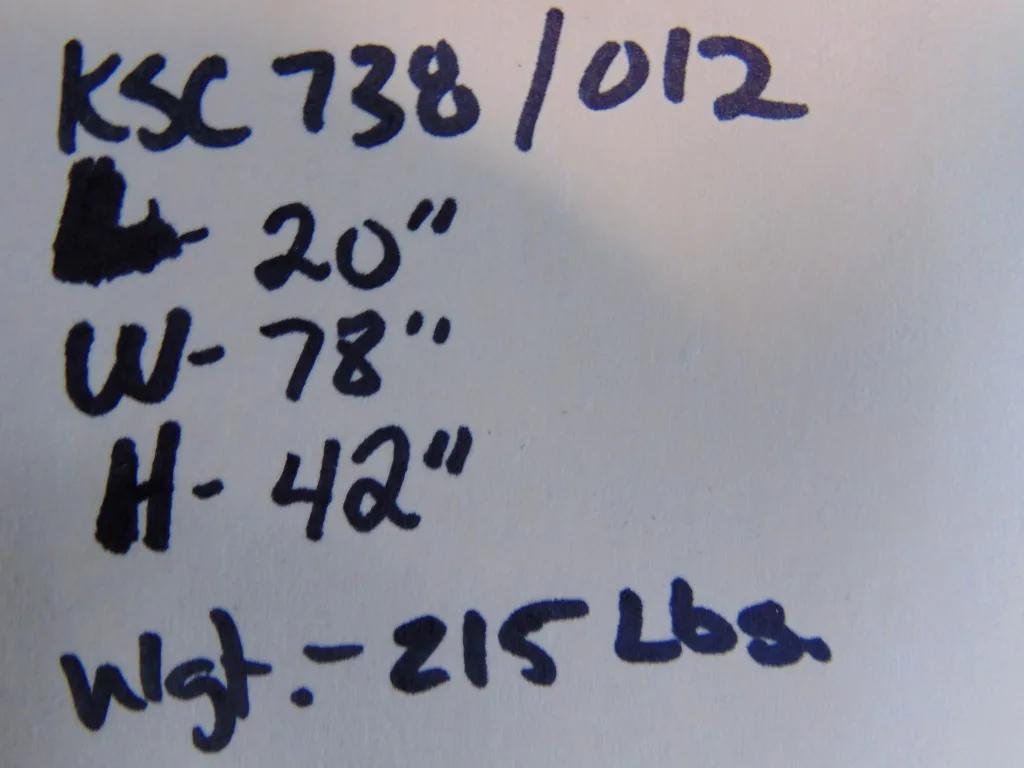 KSC 738/012
L- 20"
W- 78"
H- 42"
Wgt.- 215 Lbs.